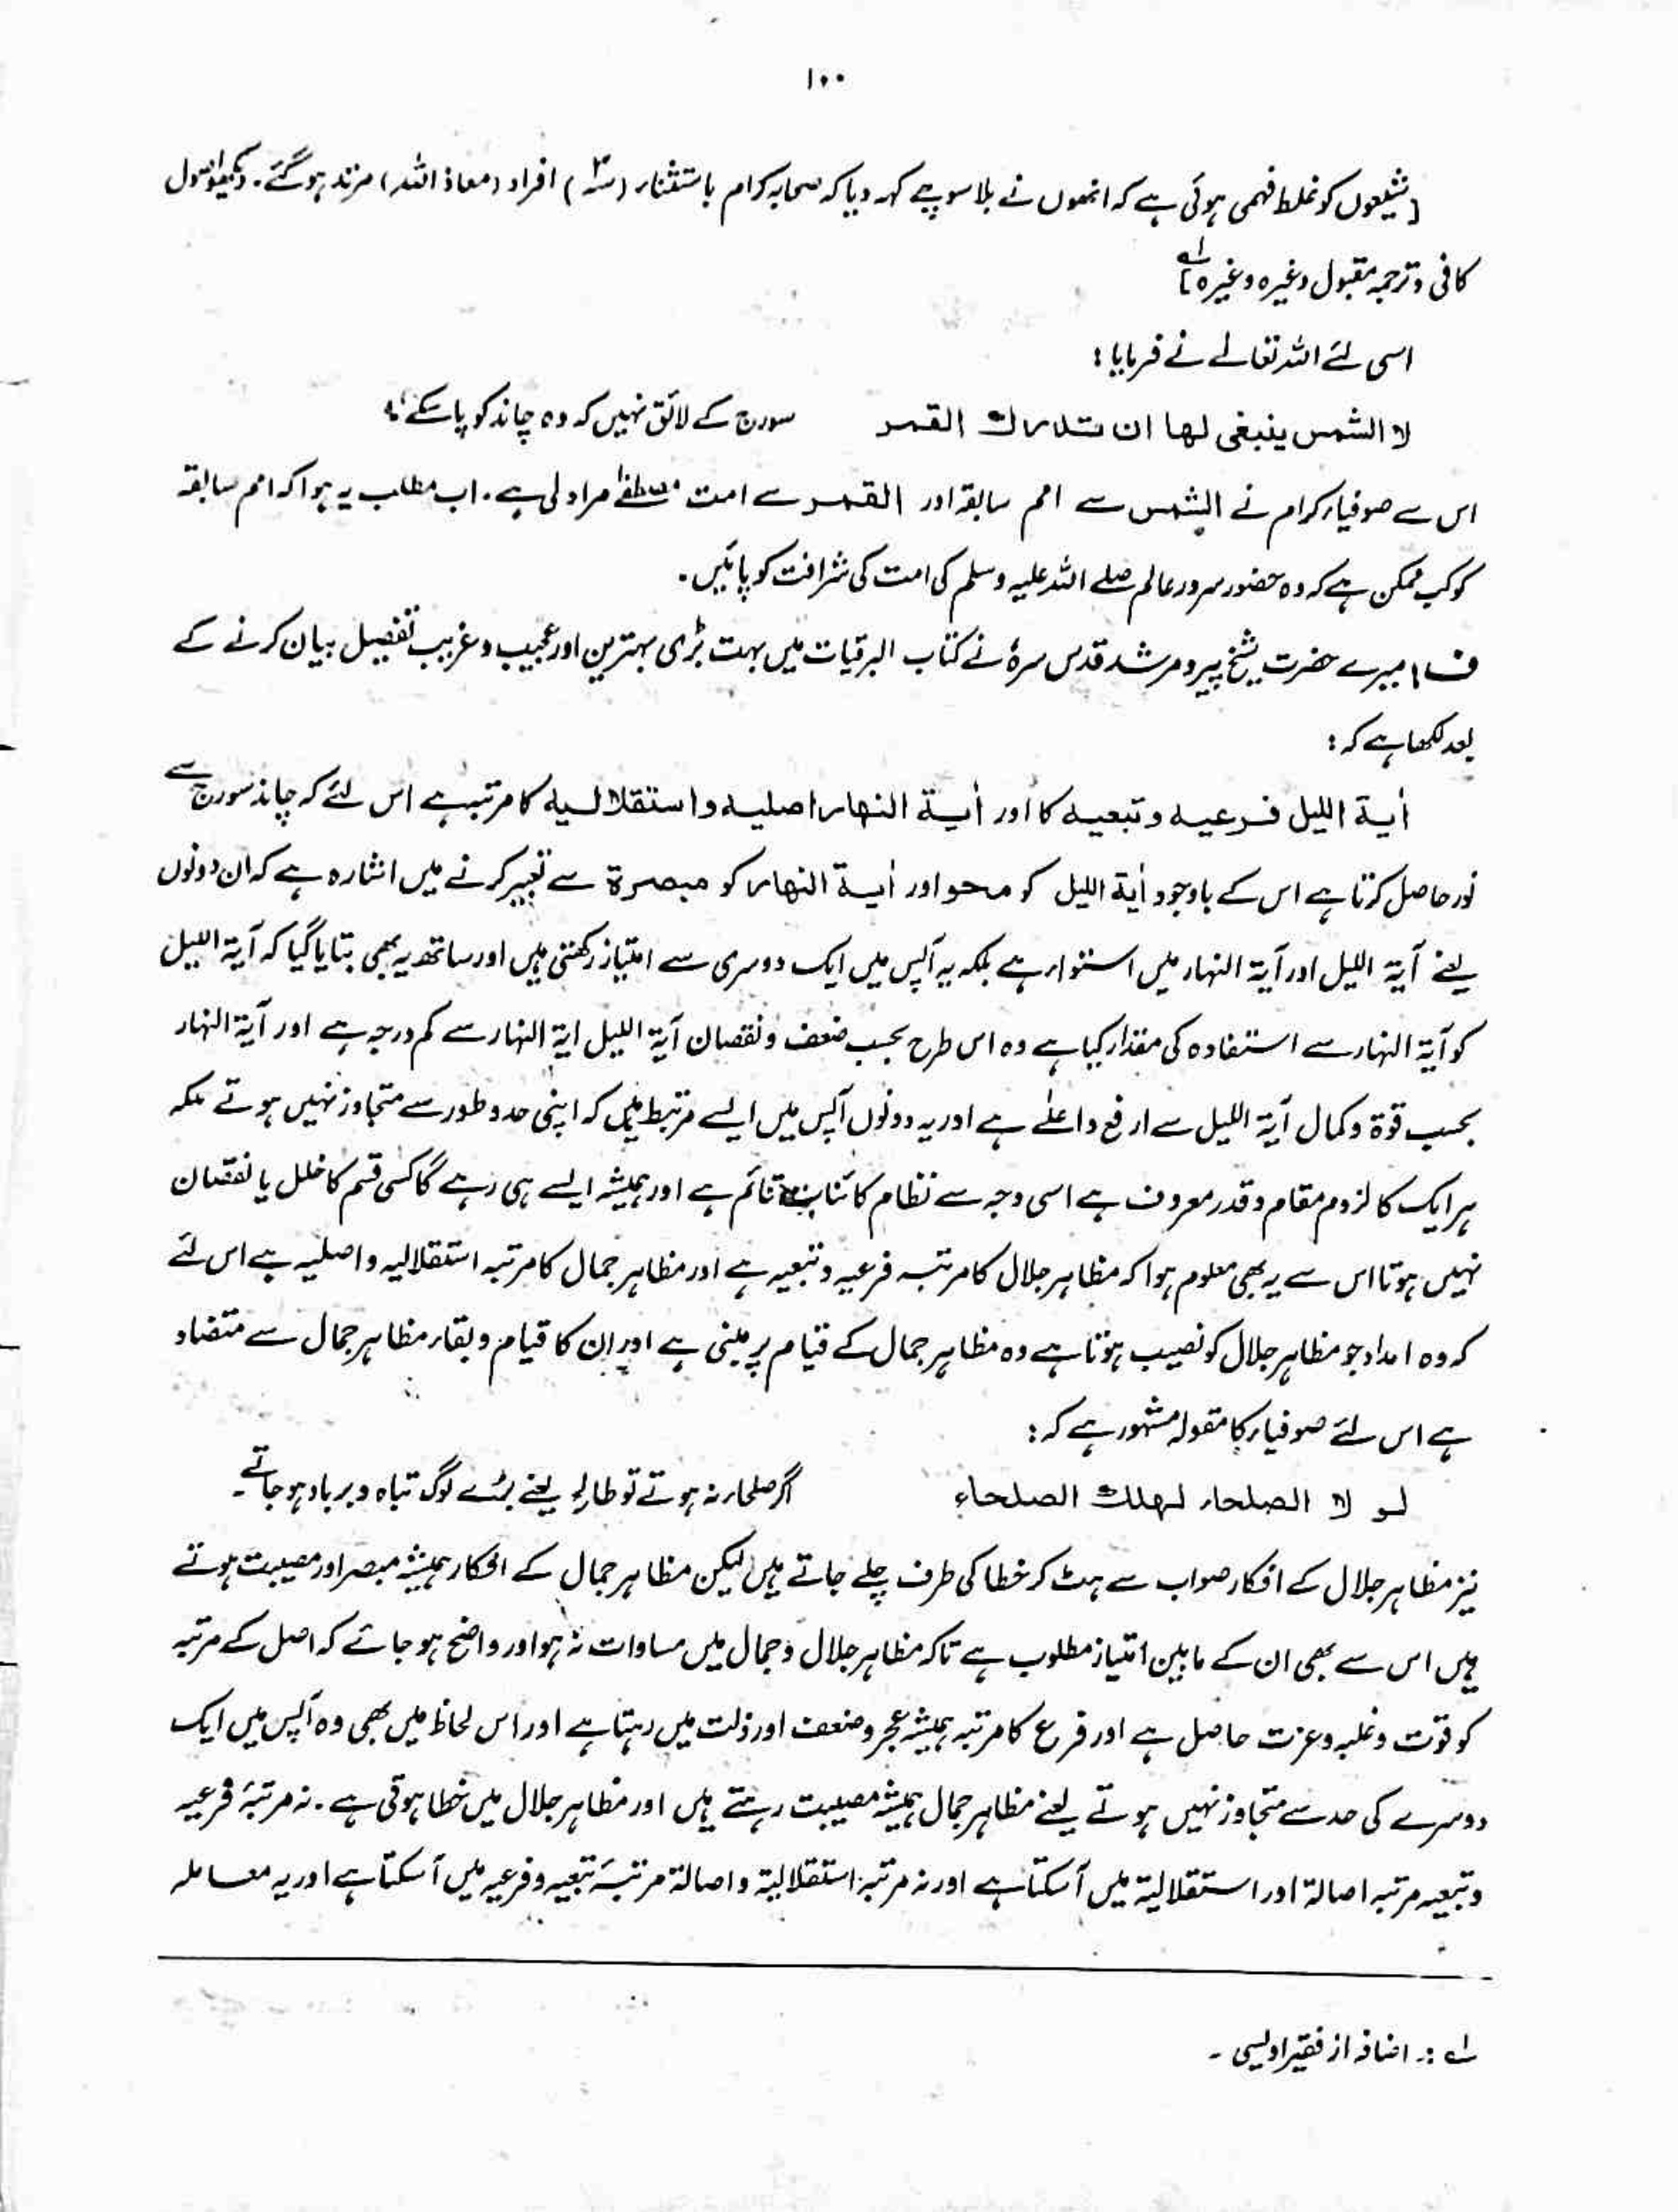 ۱۰۰
[شیعوں کو غلط فہمی ہوئی ہے کہ انھوں نے بلا سوچے کہہ دیا کہ صحابہ کرام باستثناء (۳) افراد (معاذ اللہ) مرتد ہو گئے۔ دیکھو اصول
کافی و ترجمہ مقبول وغیرہ وغیرہ] لہ
اسی لئے اللہ تعالے نے فرمایا:
لا الشمس ینبغی لها ان تدرك القمر سورج کے لائق نہیں کہ وہ چاند کو پا سکے؛
اس سے صوفیاء کرام نے الشمس سے امم سابقہ اور القمر سے امت مصطفےٰ مراد لی ہے۔ اب مطلب یہ ہوا کہ امم سابقہ
کو کب ممکن ہے کہ وہ حضور سرور عالم صلے اللہ علیہ وسلم کی امت کی شرافت کو پائیں۔
ف؛ میرے حضرت شیخ پیر و مرشد قدس سرہٗ نے کتاب البرقیات میں بہت بڑی بہترین اور عجیب و غریب تفصیل بیان کرنے کے
بعد لکھا ہے کہ:
أیة اللیل فرعیه و تبعیه کا اور أیة النهار اصلیه و استقلالیه کا مرتبہ ہے اس لئے کہ چاند سورج سے
نور حاصل کرتا ہے اس کے باوجود أیة اللیل کو محو اور أیة النهار کو مبصرة سے تعبیر کرنے میں اشارہ ہے کہ ان دونوں
یعنے آیۃ اللیل اور آیۃ النہار میں استواء ہے بلکہ یہ آپس میں ایک دوسری سے امتیاز رکھتی ہیں اور ساتھ یہ بھی بتایا گیا کہ آیۃ اللیل
کو آیۃ النہار سے استفادہ کی مقدار کیا ہے وہ اس طرح بحسب ضعف و نقصان آیۃ اللیل ایۃ النہار سے کم درجہ ہے اور آیۃ النہار
بحسب قوۃ و کمال آیۃ اللیل سے ارفع و اعلےٰ ہے اور یہ دونوں آپس میں ایسے مرتبط ہیں کہ اپنی حد و طور سے متجاوز نہیں ہوتے بلکہ
ہر ایک کا لزوم مقام و قدر معروف ہے اسی وجہ سے نظام کائنات قائم ہے اور ہمیشہ ایسے ہی رہے گا کسی قسم کا خلل یا نقصان
نہیں ہوتا اس سے یہ بھی معلوم ہوا کہ مظاہر جلال کا مرتبہ فرعیہ و تبعیہ ہے اور مظاہر جمال کا مرتبہ استقلالیہ و اصلیہ ہے اس لئے
کہ وہ امداد جو مظاہر جلال کو نصیب ہوتا ہے وہ مظاہر جمال کے قیام پر مبنی ہے اور ان کا قیام و بقاء مظاہر جمال سے متضاد
ہے اس لئے صوفیاء کا مقولہ مشہور ہے کہ:
لو لا الصلحاء لهلك الصلحاء اگر صلحاء نہ ہوتے تو طالح یعنے بڑے لوگ تباہ و برباد ہو جاتے۔
نیز مظاہر جلال کے افکار صواب سے ہٹ کر خطا کی طرف چلے جاتے ہیں لیکن مظاہر جمال کے افکار ہمیشہ مبصر اور مصیبت ہوتے
ہیں اس سے بھی ان کے مابین امتیاز مطلوب ہے تاکہ مظاہر جلال و جمال میں مساوات نہ ہو اور واضح ہو جائے کہ اصل کے مرتبہ
کو قوت و غلبہ و عزت حاصل ہے اور فرع کا مرتبہ ہمیشہ عجز و ضعف اور ذلت میں رہتا ہے اور اس لحاظ میں بھی وہ آپس میں ایک
دوسرے کی حد سے متجاوز نہیں ہوتے یعنے مظاہر جمال ہمیشہ مصیبت رہتے ہیں اور مظاہر جلال میں خطا ہوتی ہے۔ نہ مرتبۂ فرعیہ
و تبعیہ مرتبہ اصالۃ اور استقلالیۃ میں آ سکتا ہے اور نہ مرتبہ استقلالیۃ و اصالۃ مرتبۂ تبعیہ و فرعیہ میں آ سکتا ہے اور یہ معاملہ
لہ :۔ اضافہ از فقیر اویسی ۔